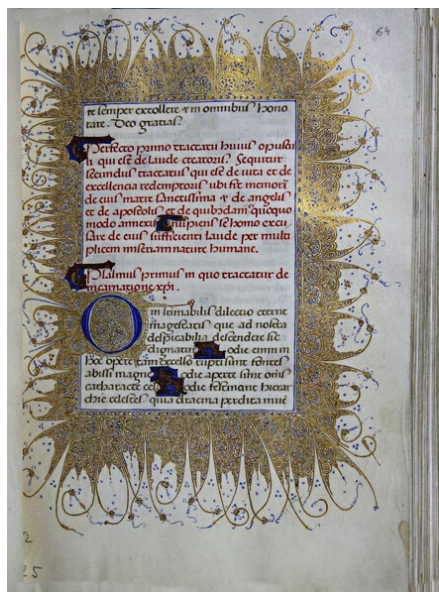 64
re semper extollere & in omnibus hono
rare. Deo gratias.
Perfecto primo tractatu huius opuscu
li qui est de laude creatoris. Sequitur
secundus tractatus qui est de vita et de
excellencia redemptoris ubi fit memoria
de eius matre sanctissima & de angelis
et de apostolis et de quibusdam quoquo
modo annexis
homo excu
sare de eius sufficienti laude per multi
plicem miseriam nature humane.
Psalmus primus in quo tractatur de
incarnatione xpi.
O inestimabilis dilectio eterne
magestatis que ad nostra
despicabilia descendere sic
dignatur odie enim in
hoc opere tam excelso rupti sunt fontes
abissi magne odie aperte sunt omnes
catharacte celi odie festinant hierar
chie celestes quia dracma perdita inve
2
25